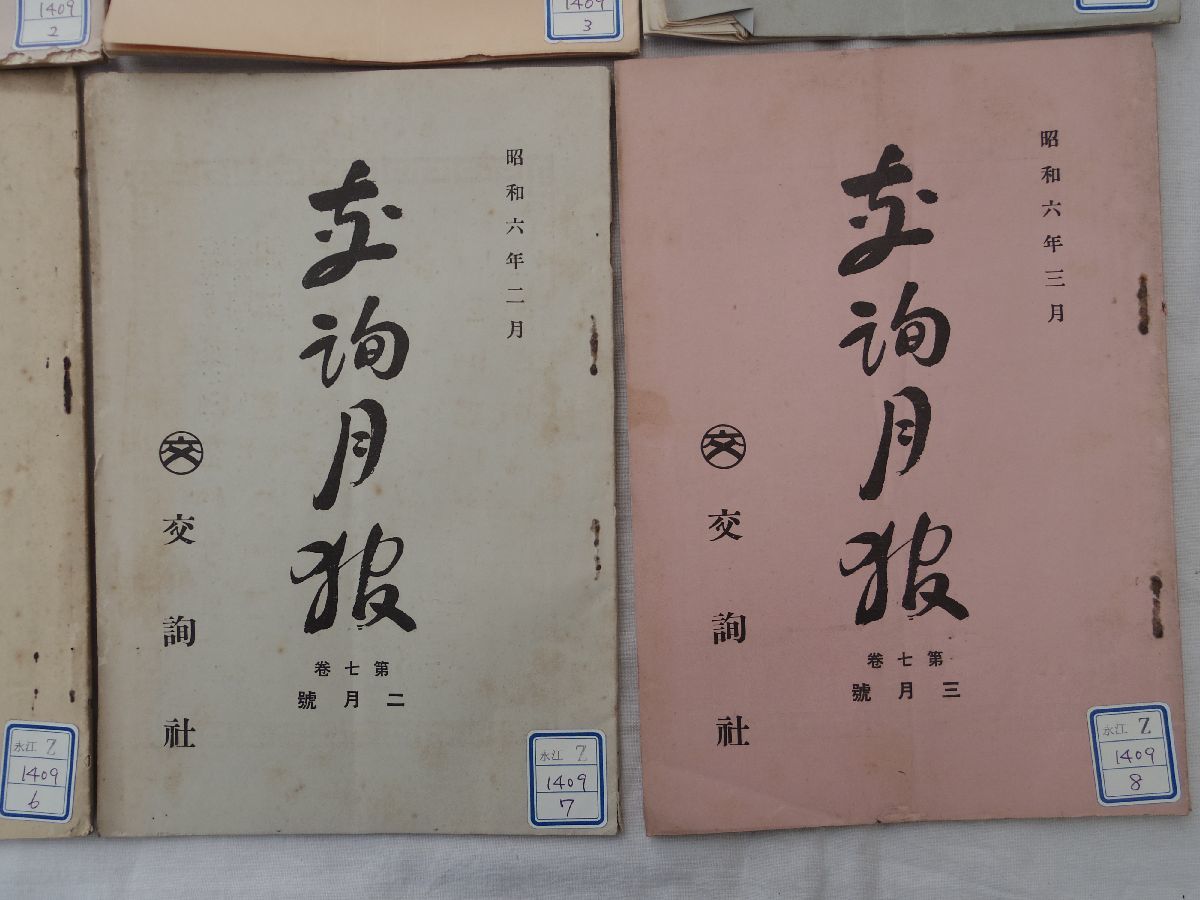 1409
2
1409
3
昭和六年二月
交詢月報
第七卷
二月號
交
交詢社
永江 Z
1409
6
永江 Z
1409
7
昭和六年三月
交詢月報
第七卷
三月號
交
交詢社
永江 Z
1409
8